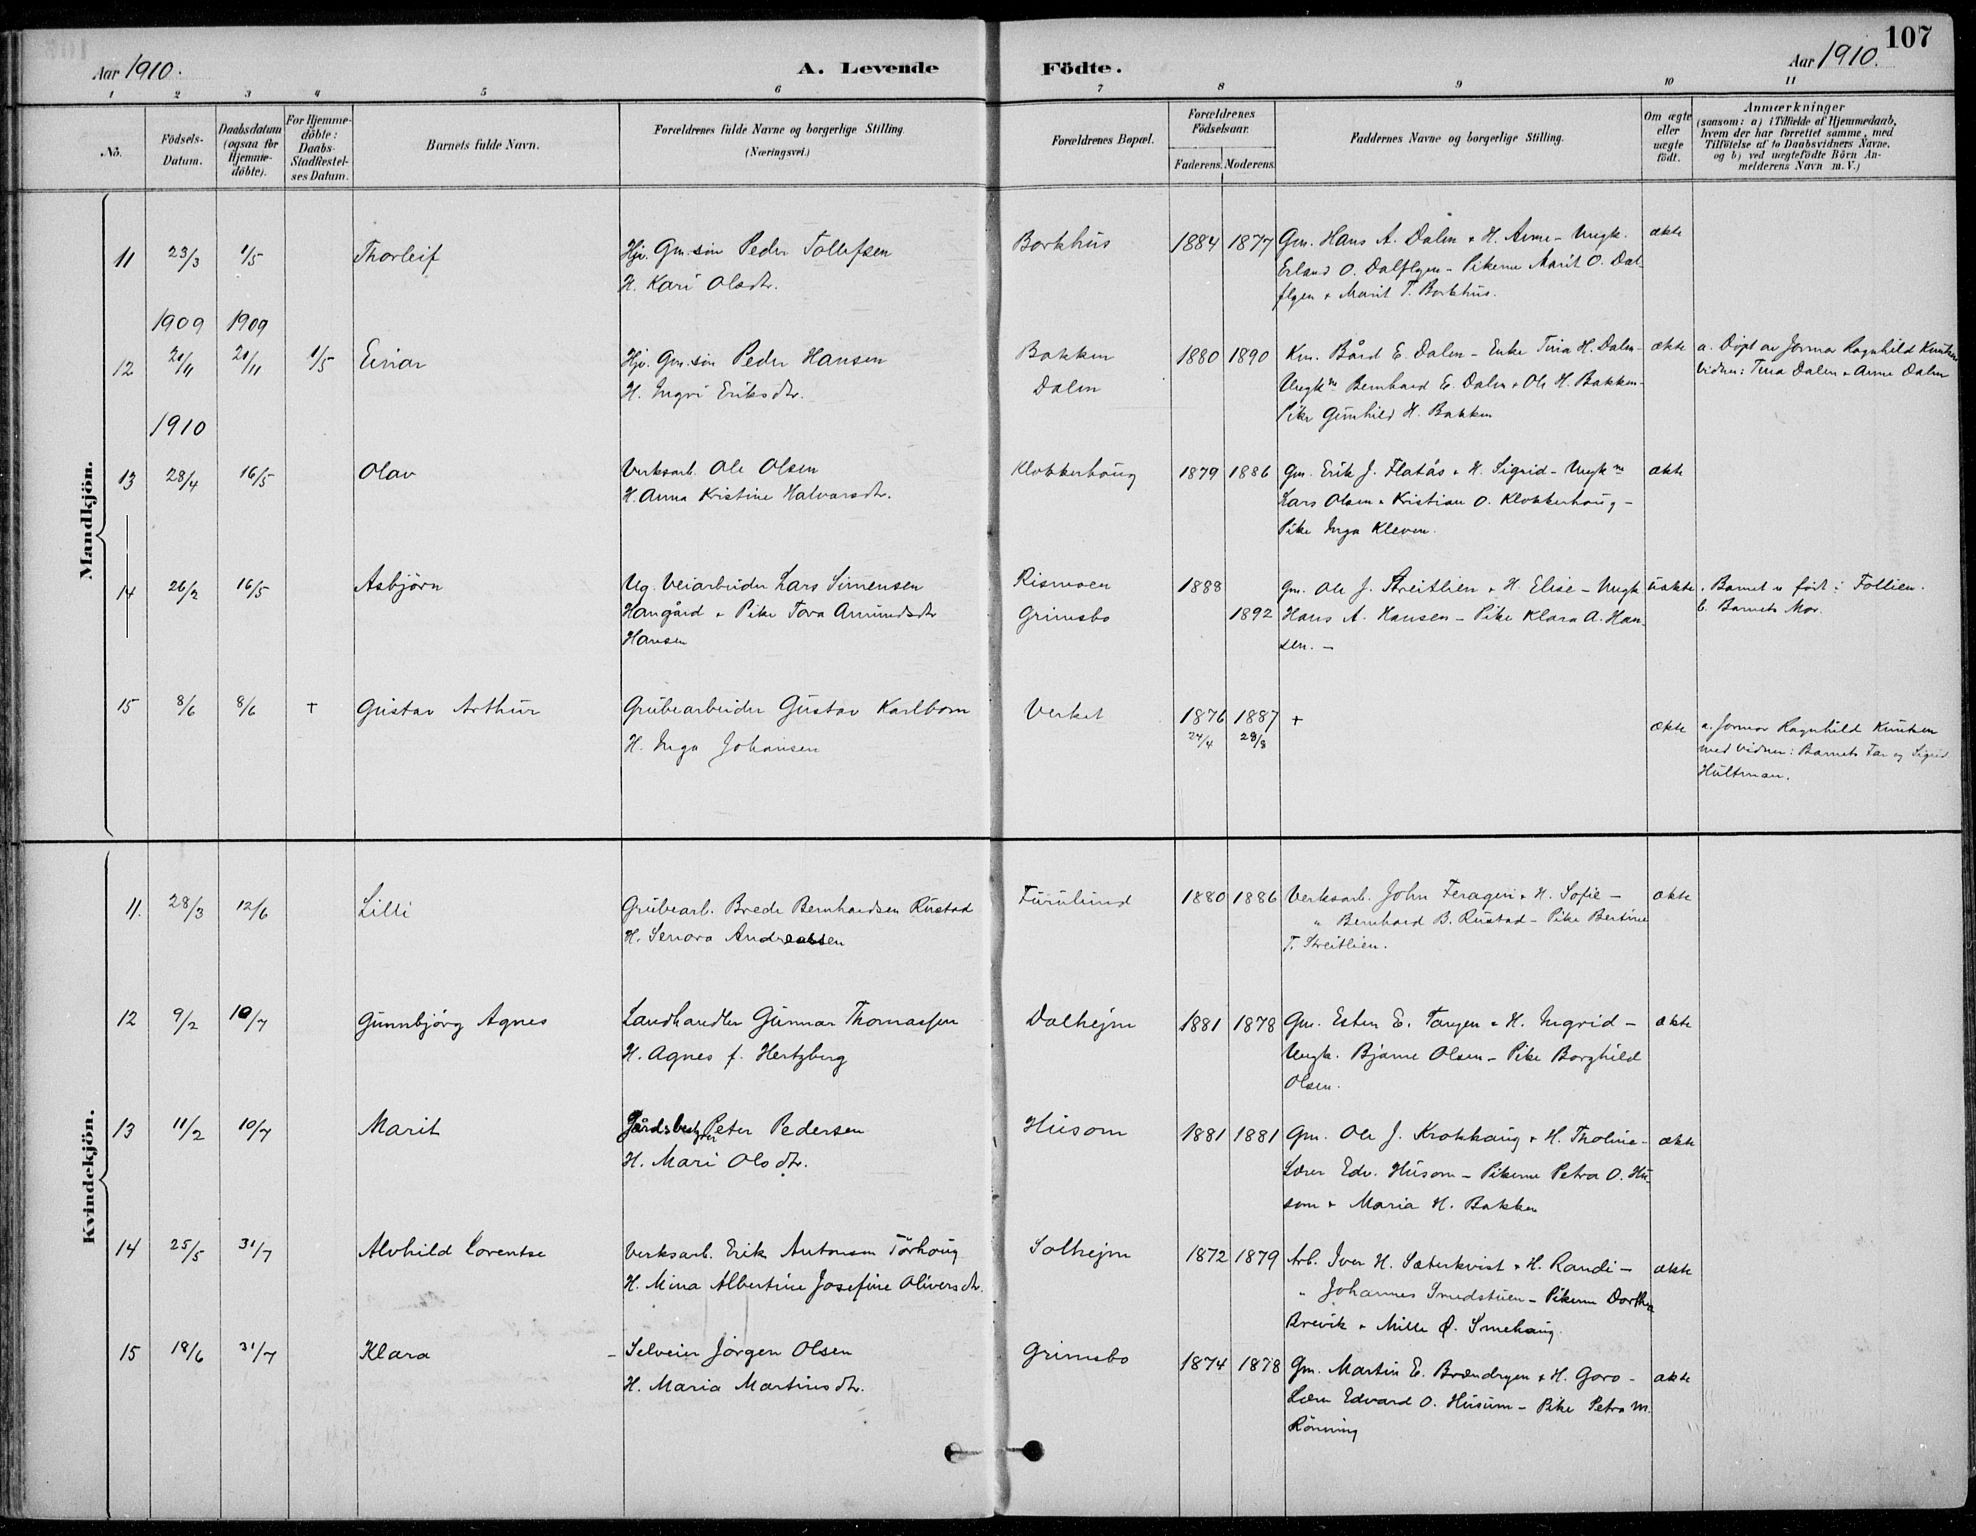 107
Aar 1910.
A. Levende Födte.
Aar 1910.
1 2 3 4 5 6 7 8 9 10 11
No.
Födsels-Datum.
Daabsdatum (ogsaa for Hjemme-döbte).
For Hjemme-döbte: Daabs-Stadfestel-ses Datum.
Barnets fulde Navn.
Forældrenes fulde Navne og borgerlige Stilling.
(Næringsvei.)
Forældrenes Bopæl.
Forældrenes Födselsaar.
Faderens. Moderens.
Faddernes Navne og borgerlige Stilling.
Om ægte eller uægte født.
Anmærkninger
(saasom: a) i Tilfælde af Hjemmedaab,
hvem der har forrettet samme, med
Tilföielse af to Daabsvidners Navne,
og b) ved uægtefødte Börn An-
melderens Navn m. V.)
Mandkjön.
11 23/3 1/5 Thorleif
Hjv. Gm.sön Peder Tollefsen
H. Kari Olsdtr.
Borkhus 1884 1877
Gm. Hans A. Dalen + H. Anne - Ungk.
Erland O. Dalflyen - Pikerne Marit O. Dal-
flyen + Marit T. Borkhus.
ækte
1909 1909
12 21/11 21/11 1/5 Einar
Hjv. Gm.sön Peder Hansen
H. Ingri Eriksdtr.
Bakken
Dalen
1880 1890
Km. Bård E. Dalen - Enke Tina H. Dalen -
Ungkm Bernhard E. Dalen + Ole H. Bakken -
Pike Gunhild H. Bakken
ækte
a. Döpt av Jormor Ragnhild Knutsen
Vidner: Tina Dalen + Anne Dalen
1910
13 28/4 16/5 Olav
Verksarb. Ole Olsen
H. Anna Kristine Halvorsdtr.
Klokkerhoug 1879 1886
Gm. Erik J. Flatås + H. Sigrid - Ungkm
Lars Olsen + Kristian O. Klokkerhoug -
Pike Inga Kleven.
ækte
14 26/2 16/5 Asbjörn
Ug. Veiarbeider Lars Simensen
Haugård + Pike Tora Amundsdtr
Hansen
Rismoen 1888
Grimsbo 1892
Gm. Ole J. Streitlien + H. Elise - Ungk.
Hans A. Hansen - Pike Klara A. Han-
sen. -
uækte
. Barnet er födt i Follien.
b. Barnets Mor.
15 8/6 8/6 + Gustav Arthur
Grubearbeider Gustav Karlbom
H. Inga Johansen
Verket 1876 1887 +
24/4 28/8
ækte
a. Jormor Ragnhild Knutsen
med vidner: Barnets Far og Sigrid
Hultman.
Kvindekjön.
11. 28/3 12/6 Lilli
Grubearb. Brede Bernhardsen Rustad
H. Senora Andreassen
Furulund 1880 1886
Verksarb. John Feragen + H. Sofie -
" Bernhard B. Rustad - Pike Bertine
T. Streitlien.
ækte
12 9/2 10/7 Gunnbjörg Agnes
Landhandler Gunnar Thomassen
H. Agnes f. Hertzberg
Dalhejm 1881 1878
Gm. Esten E. Tangen + H. Ingrid -
Ungk. Bjarne Olsen - Pike Borghild
Olsen.
ækte
13 11/2 10/7 Marit
Gårdsbestyrer Peter Pedersen
H. Mari Olsdtr.
Husom 1881 1881
Gm. Ole J. Krokhaug + H. Tholine -
Lærer Edv. Husom - Pikerne Petra O. Hu-
som + Maria H. Bakken
ækte
14 25/5 31/7 Alvhild Lorentse
Verksarb. Erik Antonsen Törhoug
H. Mina Albertine Josefine Oliversdtr.
Solhejm 1872 1879
Arb. Iver H. Sæterkvist + H. Randi -
" Johannes Smedstuen - Pikerne Dorthea
Brevik + Mille Ø. Smehaug.
ækte
15 18/6 31/7 Klara
- Selveier Jörgen Olsen
H. Maria Martinsdtr.
Grimsbo 1874 1878
Gm. Martin E. Brændryen + H. Goro -
Lærer Edvard O. Husum - Pike Petra M.
Rönning
ækte